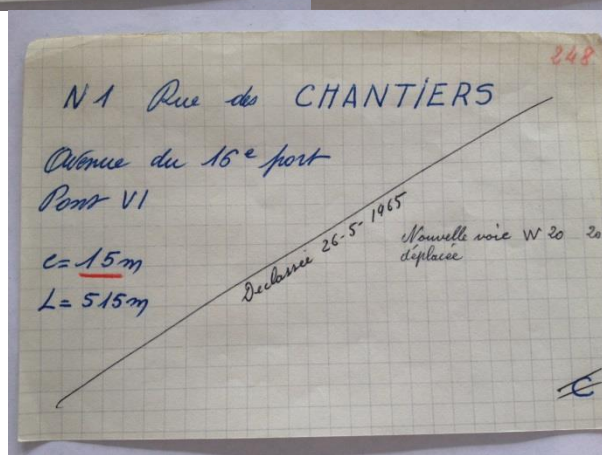 248
N1 Rue des CHANTIERS
Avenue du 16e port
Pont VI
l= 15m
L= 515m
Declassée 26-5-1965
Nouvelle voie W 20 20
déplacée
C